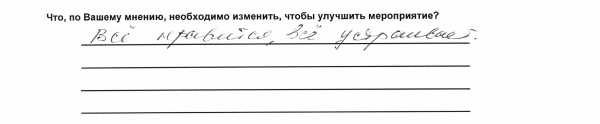 Что, по Вашему мнению, необходимо изменить, чтобы улучшить мероприятие?
Всё нравится, всё устраивает.